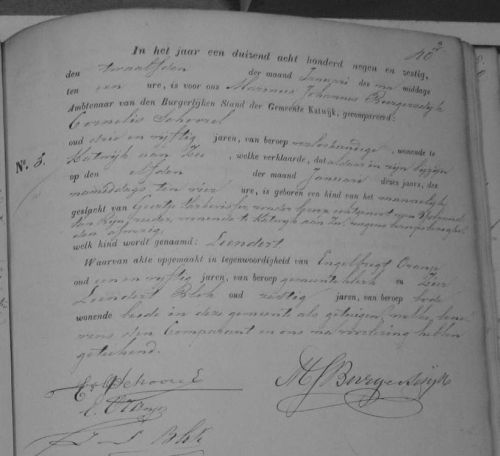 In het jaar een duizend acht honderd negen en zestig,
den twaalfden der maand Januari des na middags
ten een ure, is voor ons Marinus Johannes Burgersdijk
Ambtenaar van den Burgerlijken Stand der Gemeente Katwijk, gecompareerd:
Cornelis Schoorel
oud drie en vijftig jaren, van beroep verloskundige, wonende te
Katwijk aan Zee, welke verklaarde, dat aldaar in zijn bijzijn
No. 5.
op den elfden der maand Januari dezes jaars, des
namiddags ten vier ure, is geboren een kind van het mannelijk
geslacht van zonder beroep echtgenoot van
wonende te Katwijk aan Zee, wegens
welk kind wordt genaamd: Leendert
Waarvan akte opgemaakt in tegenwoordigheid van Engelfregt
oud een en vijftig jaren, van beroep gemeenteklerk en
Leendert Blok oud zestig jaren, van beroep bode
wonende beide in deze gemeente als getuigen, welke bene
vens den Comparant en ons na voorlezing hebben
geteekend.
C Schoorel
MJ Burgersdijk
L Blok